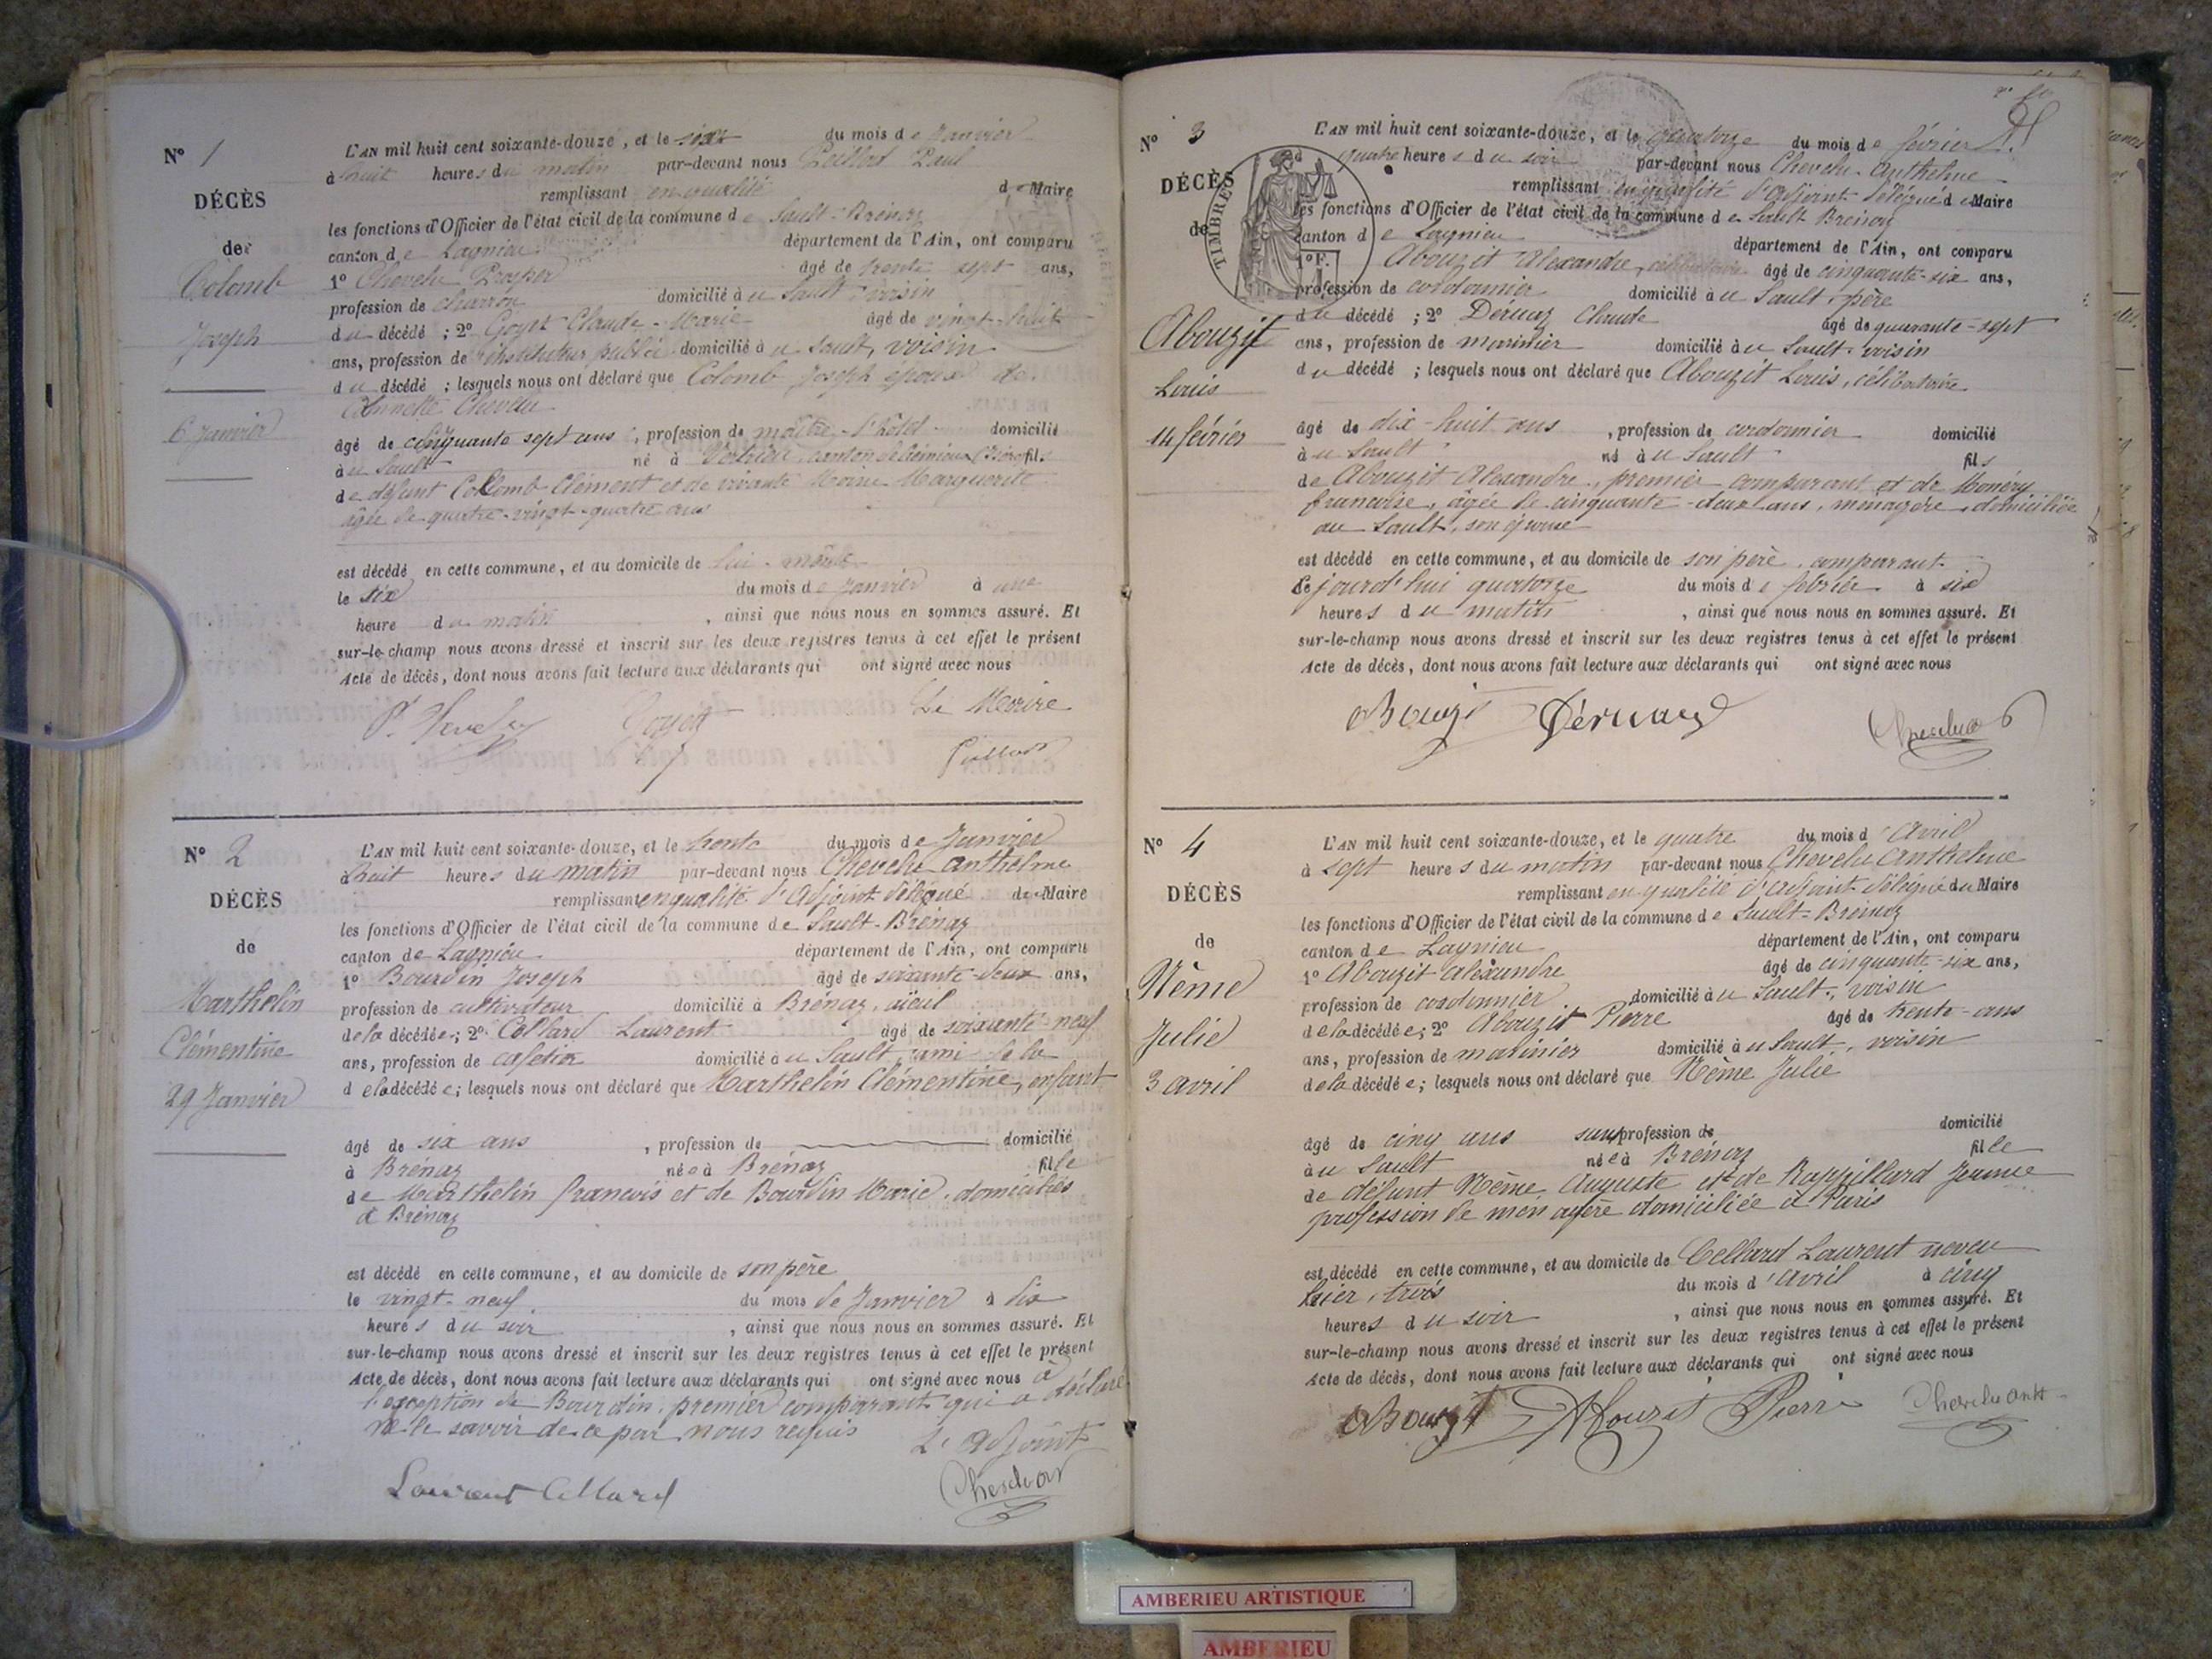 N° 1
DÉCÈS
de
Colomb
Joseph
6 Janvier
L'AN mil huit cent soixante-douze, et le six du mois de Janvier
à huit heures du matin par-devant nous Paul
remplissant en qualité de Maire
les fonctions d'Officier de l'état civil de la commune de Sault-Brénaz
canton de Lagnieu département de l'Ain, ont comparu
1° Chevelu Prosper âgé de trente sept ans,
profession de charron domicilié à u Sault, voisin
du décédé ; 2° Goyet Claude-Marie âgé de vingt-huit
ans, profession de instituteur public domicilié à u Sault, voisin
du décédé ; lesquels nous ont déclaré que Colomb Joseph époux de
Annette Chevelu
âgé de cinquante sept ans, profession de maître d'hôtel domicilié
à u Sault né à canton de fils
de défunt Collomb Clément et de vivante Marguerite
âgée de quatre-vingt-quatre ans
est décédé en cette commune, et au domicile de lui-même
le six du mois de Janvier à une
heure du matin, ainsi que nous nous en sommes assuré. Et
sur-le-champ nous avons dressé et inscrit sur les deux registres tenus à cet effet le présent
Acte de décès, dont nous avons fait lecture aux déclarants qui ont signé avec nous
Le Maire
Goyet
N° 2
DÉCÈS
de
Marthelin
Clémentine
29 Janvier
L'AN mil huit cent soixante-douze, et le trente du mois de Janvier
à huit heures du matin par-devant nous Chevelu Anthelme
remplissant en qualité d'Adjoint délégué du Maire
les fonctions d'Officier de l'état civil de la commune de Sault-Brénaz
canton de Lagnieu département de l'Ain, ont comparu
1° Bourdin Joseph âgé de soixante-deux ans,
profession de cultivateur domicilié à Brénaz, aïeul
de la décédée; 2° Cellard Laurent âgé de soixante-neuf
ans, profession de cafetier domicilié à u Sault, ami de la
de la décédée; lesquels nous ont déclaré que Marthelin Clémentine, enfant
âgé de six ans, profession de domicilié
à Brénaz née à Brénaz fille
de Marthelin françois et de Bourdin Marie, domiciliés
à Brénaz
est décédé en cette commune, et au domicile de son père
le vingt-neuf du mois de Janvier à dix
heures du soir, ainsi que nous nous en sommes assuré. Et
sur-le-champ nous avons dressé et inscrit sur les deux registres tenus à cet effet le présent
Acte de décès, dont nous avons fait lecture aux déclarants qui ont signé avec nous à
l'exception de Bourdin, premier comparant qui a déclaré
ne le savoir de ce par nous requis
L'adjoint
Laurent Cellard
N° 3
DÉCÈS
de
TIMBRE
1°F.
Abouzit
Louis
14 février
L'AN mil huit cent soixante-douze, et le quatorze du mois de février
quatre heures du soir par-devant nous Chevelu Anthelme
remplissant en qualité d'Adjoint délégué du Maire
les fonctions d'Officier de l'état civil de la commune de Sault Brénaz
canton de Lagnieu département de l'Ain, ont comparu
Abouzit Alexandre, âgé de cinquante-six ans,
profession de cordonnier domicilié à u Sault, père
du décédé ; 2° Dernaz Claude âgé de quarante-sept
ans, profession de marinier domicilié à u Sault, voisin
du décédé ; lesquels nous ont déclaré que Abouzit Louis, célibataire
âgé de dix-huit ans, profession de cordonnier domicilié
à u Sault né à u Sault fils
de Abouzit Alexandre, premier comparant et de
françoise, âgée de cinquante-deux ans, ménagère, domiciliée
au Sault, son épouse
est décédé en cette commune, et au domicile de son père, comparant
Ce jourd'hui quatorze du mois de février à six
heures du matin, ainsi que nous nous en sommes assuré. Et
sur-le-champ nous avons dressé et inscrit sur les deux registres tenus à cet effet le présent
Acte de décès, dont nous avons fait lecture aux déclarants qui ont signé avec nous
N° 4
DÉCÈS
de
Nême
Julie
3 avril
L'AN mil huit cent soixante-douze, et le quatre du mois d'Avril
à sept heures du matin par-devant nous Chevelu Anthelme
remplissant en qualité d'adjoint délégué du Maire
les fonctions d'Officier de l'état civil de la commune de Sault-Brénaz
canton de Lagnieu département de l'Ain, ont comparu
1° Abouzit alexandre âgé de cinquante-six ans,
profession de cordonnier domicilié à u Sault, voisin
de la décédée; 2° Abouzit Pierre âgé de trente-ans
ans, profession de marinier domicilié à u Sault, voisin
de la décédée; lesquels nous ont déclaré que Nême Julie
âgé de cinq ans sans profession de domicilié
à u Sault née à Brénaz fille
de défunt Nême Auguste et de Rappillard Jeanne
profession de ménagère domiciliée à Paris
est décédé en cette commune, et au domicile de Cellard Laurent neveu
hier, trois du mois d'avril à cinq
heures du soir, ainsi que nous nous en sommes assuré. Et
sur-le-champ nous avons dressé et inscrit sur les deux registres tenus à cet effet le présent
Acte de décès, dont nous avons fait lecture aux déclarants qui ont signé avec nous
Abouzit Abouzit Pierre
AMBERIEU ARTISTIQUE
AMBERIEU